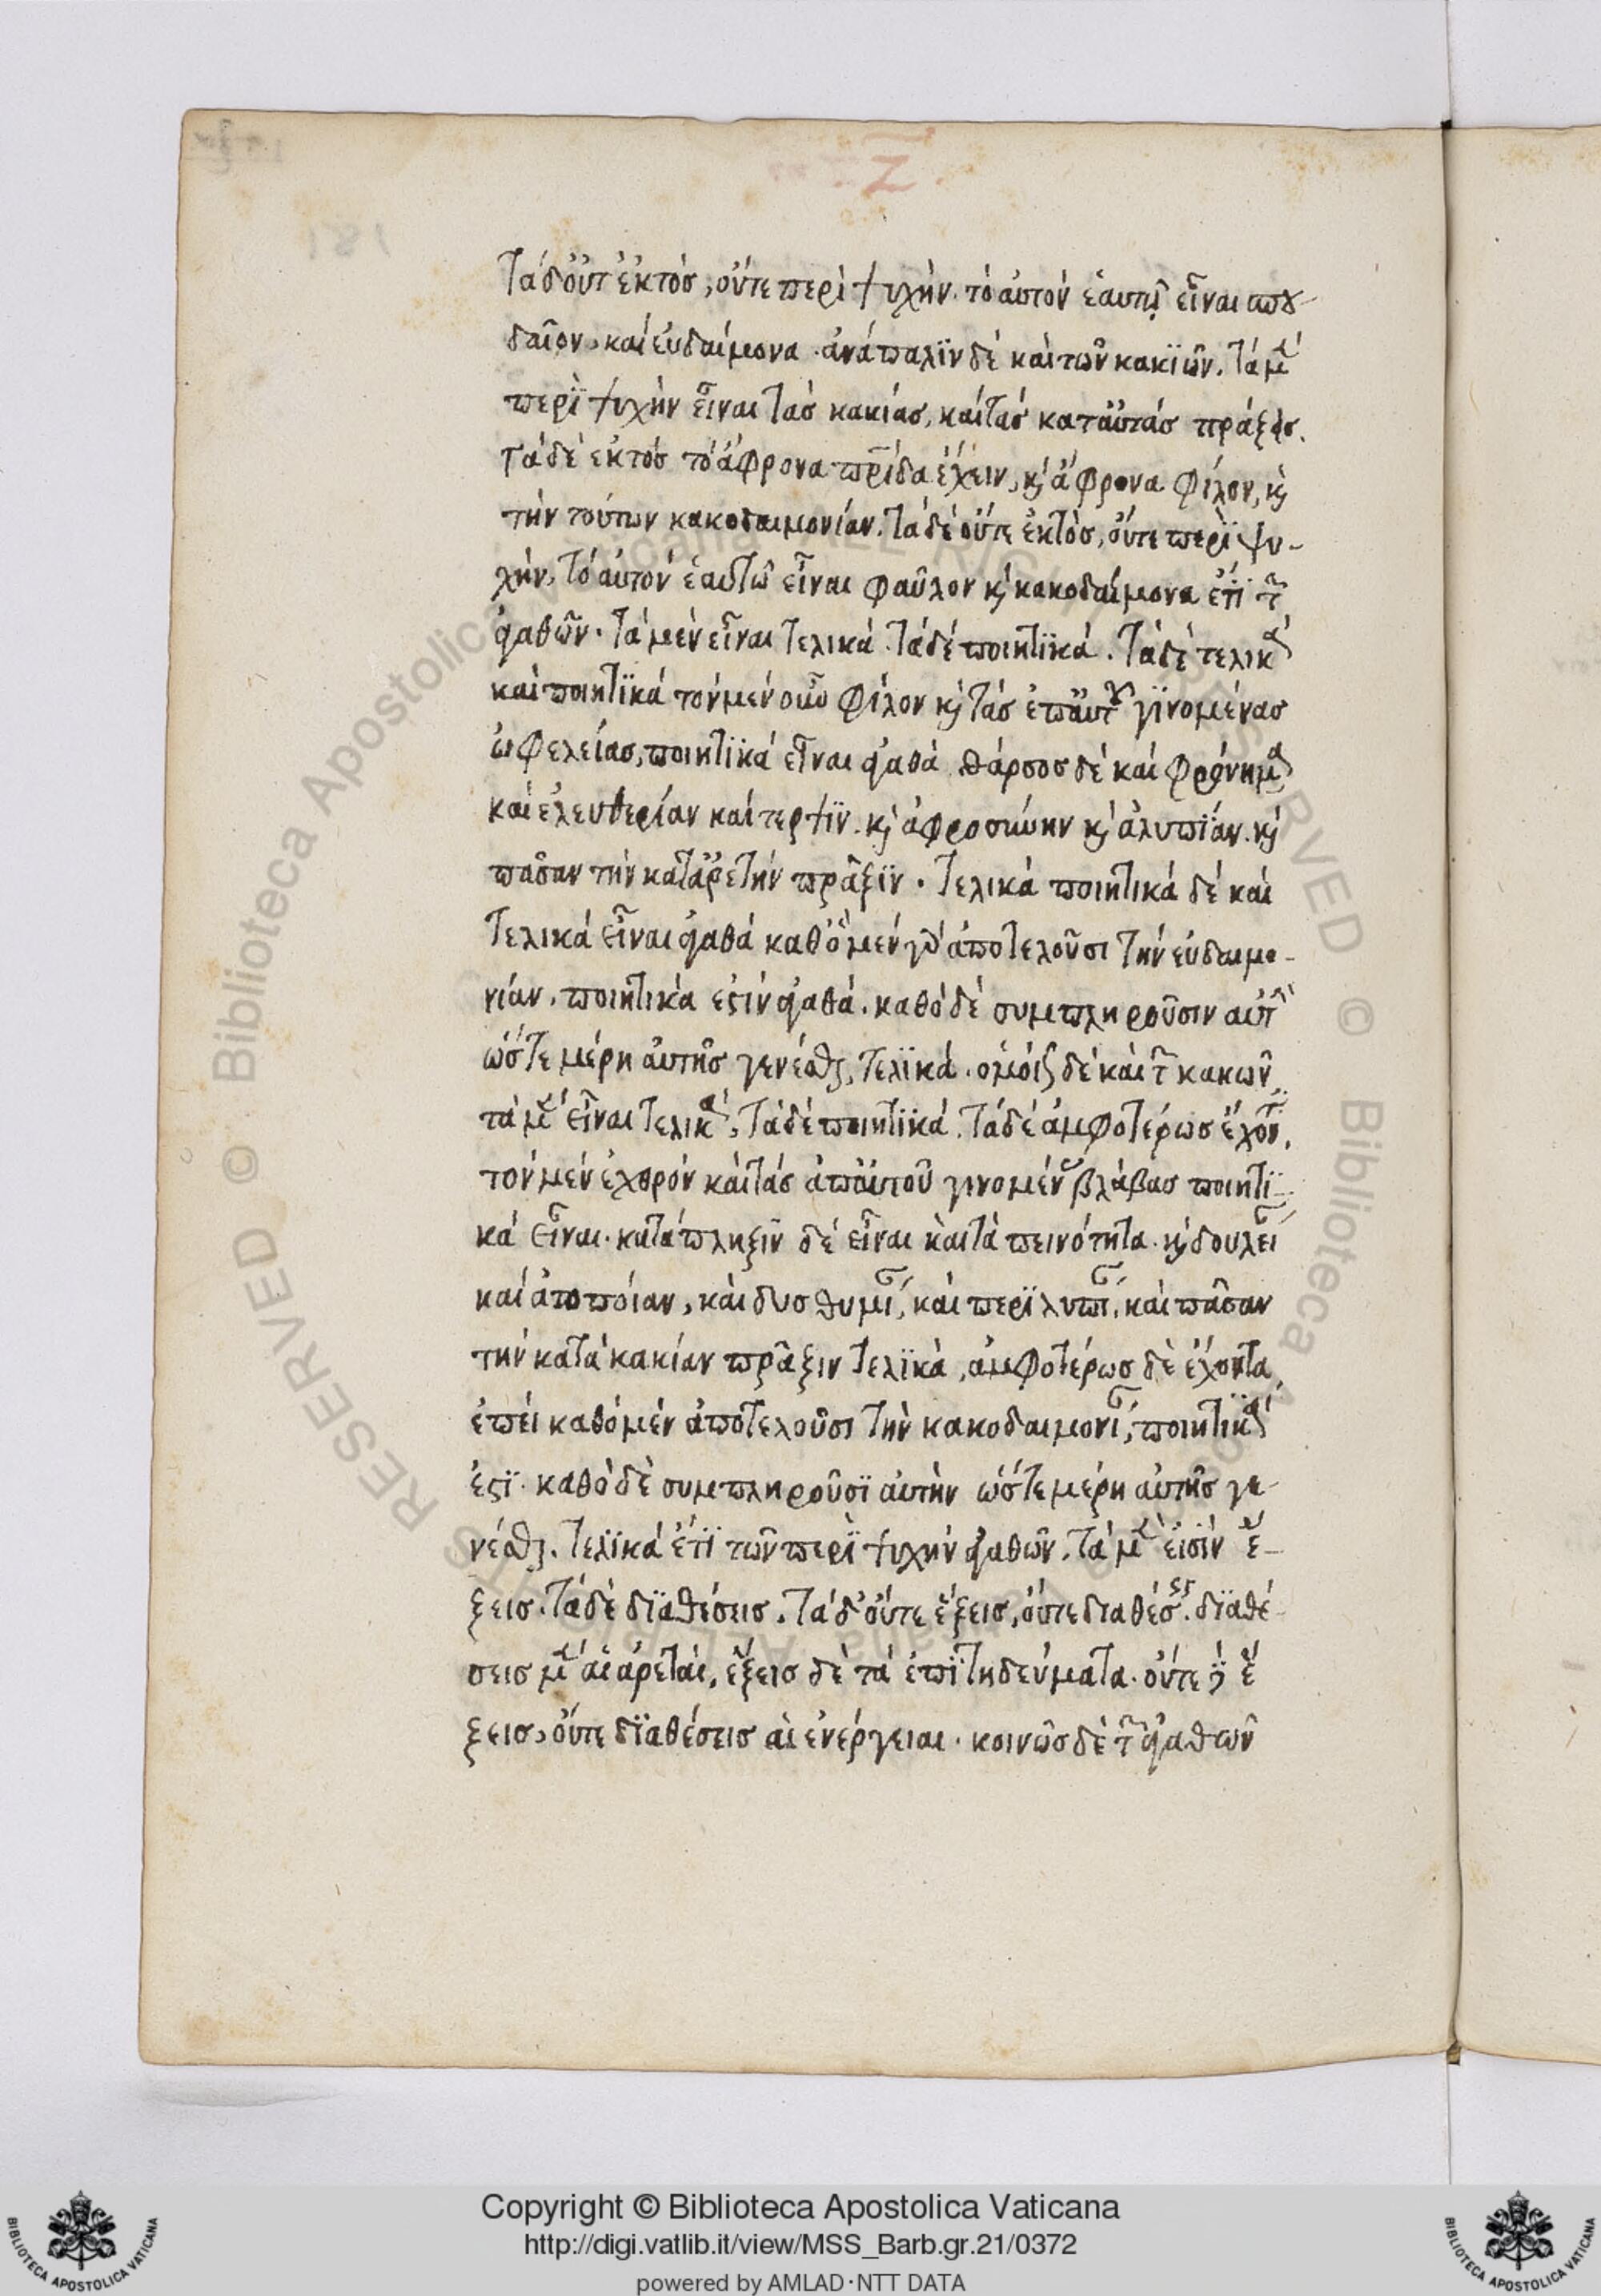 Ζ
181
Τὰ δ' οὔτ' ἐκτὸς, οὔτε περὶ ψυχὴν. τὸ αὐτὸν ἑαυτῷ εἶναι σπου-
δαῖον, καὶ εὐδαίμονα. ἀνάπαλϊν δὲ καὶ τῶν κακϊῶν. τὰ μὲν
περὶ ψυχὴν εἶναι τὰς κακίας, καὶ τὰς κατ' αὐτὰς πράξεις.
τὰ δὲ ἐκτὸς τὸ ἄφρονα πρίδα ἔχειν, κὶ ἄφρονα φίλον, κὶ
τὴν τούτων κακοδαιμονίαν. τὰ δὲ οὔτε ἐκτὸς, οὔτε περὶ ψυ-
χὴν, τὸ αὐτὸν ἑαυτῶ εἶναι φαῦλον κὶ κακοδαίμονα ἔτϊ τῶν
ἀγαθῶν. τὰ μὲν εἶναι τελικά. τὰ δὲ ποιητϊκά. τὰ δὲ τελικὰ
καὶ ποιητϊκά τὸν μὲν οὖν φίλον κὶ τὰς ἐπ' αὐτοῦ γϊνομένας
ὠφελείας, ποιητϊκά εἶναι ἀγαθὰ θάρσος δὲ καὶ φρόνημα
καὶ ἐλευθερίαν καὶ τέρψϊν. κὶ ἀφροσύνην κὶ ἀλυπϊαν. κὶ
πᾶσαν τὴν κατ' ἀρετὴν πρᾶξϊν. τελικά ποιητικά δὲ καὶ
τελικά εἶναι ἀγαθὰ καθ' ὃ μὲν γὰρ ἀποτελοῦσι τὴν εὐδαιμο-
νίαν, ποιητικὰ ἐστὶν ἀγαθὰ. καθὸ δὲ συμπληροῦσιν αὐτὴν
ὥστε μέρη αὐτῆς γενέσθαι, τελϊκά. ὁμοίως δὲ καὶ τῶν κακῶν
τὰ μὲν εἶναι τελικὰ, τὰ δὲ ποιητϊκά. τὰ δὲ ἀμφοτέρως ἔχοντα,
τὸν μὲν ἐχθρὸν καὶ τὰς ἀπ' αὐτοῦ γινομένας βλάβας ποιητϊ-
κά εἶναι. κατάπληξϊν δὲ εἶναι καὶ ταπεινότητα. κὶ δουλείαν
καὶ ἀτοποίαν, καὶ δυσθυμίαν, καὶ περϊλυπίαν, καὶ πᾶσαν
τὴν κατὰ κακίαν πρᾶξιν τελϊκὰ, ἀμφοτέρως δὲ ἔχοντα,
ἐπεὶ καθὸ μὲν ἀποτελοῦσι τὴν κακοδαιμονίαν, ποιητϊκὰ
ἐστϊ. καθὸ δὲ συμπληροῦσϊ αὐτὴν ὥστε μέρη αὐτῆς γε-
νέσθαι. τελϊκά ἔτϊ τῶν περϊ ψυχὴν ἀγαθῶν. τὰ μὲν εἰσϊν ἕ-
ξεις. τὰ δὲ δϊαθέσεις. τὰ δ' οὔτε ἕξεις, οὔτε διαθέσεις. δϊαθέ-
σεις μὲν αἱ ἀρεταὶ, ἕξεις δὲ τὰ ἐπϊτηδεύματα. οὔτε δὲ ἕ
ξεις, οὔτε δϊαθέσεις αἱ ἐνέργειαι. κοινῶς δὲ τῶν ἀγαθῶν
Copyright © Biblioteca Apostolica Vaticana
http://digi.vatlib.it/view/MSS_Barb.gr.21/0372
powered by AMLAD·NTT DATA